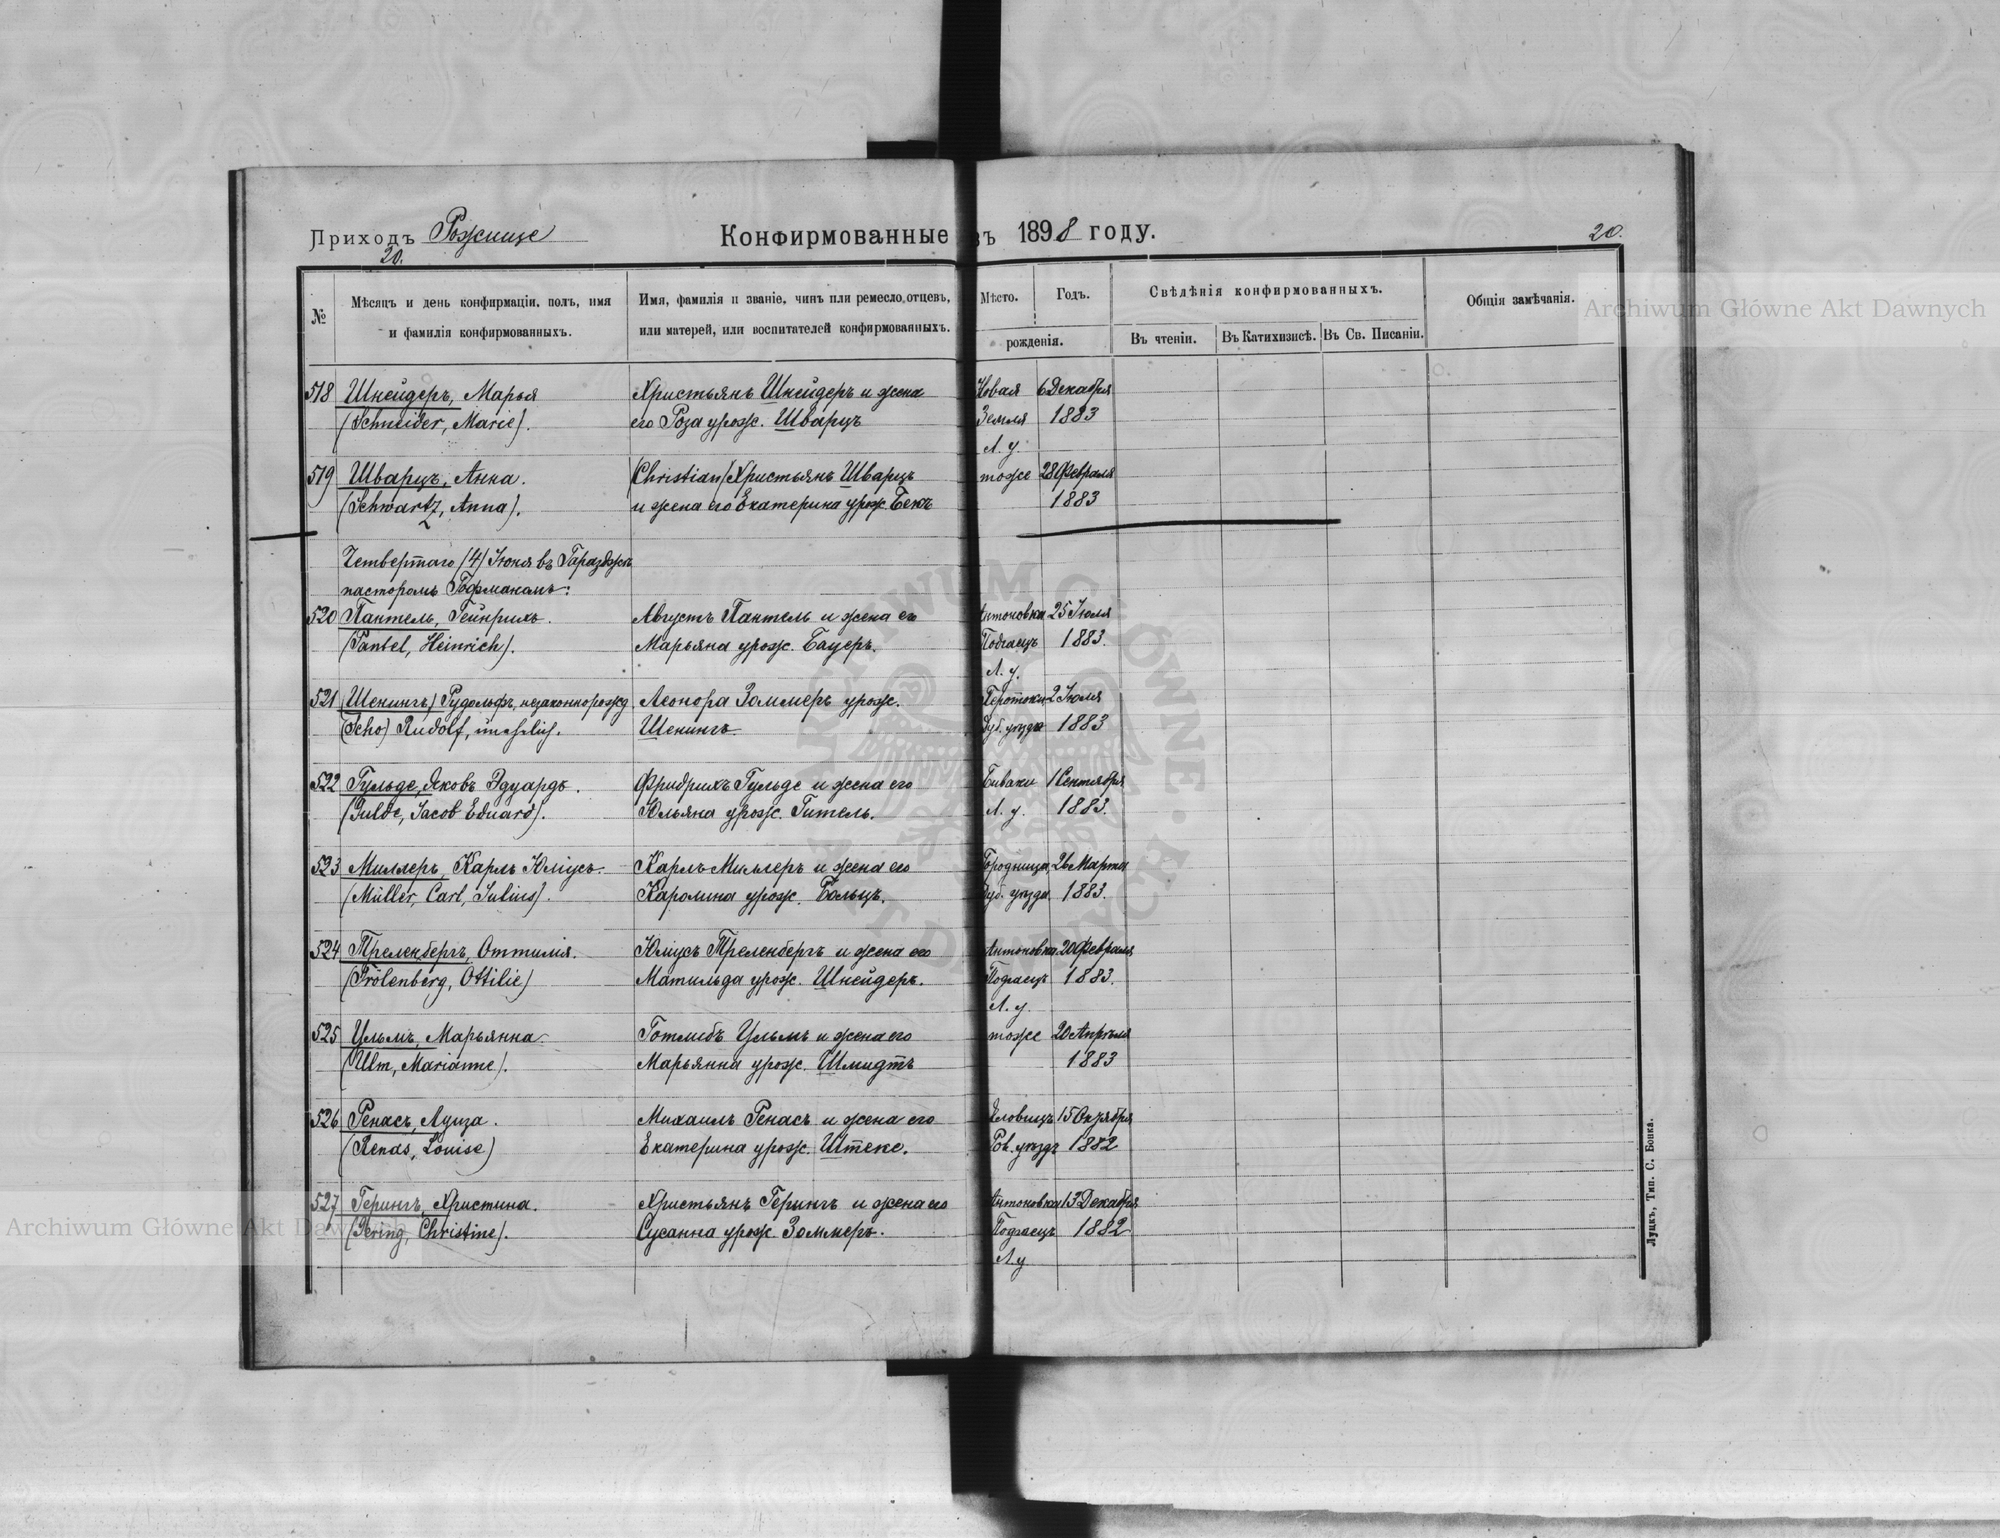 Приходъ Рожище
Конфирмованные въ 1898 году.
20.
20.
№
Мѣсяцъ и день конфирмаціи, полъ, имя
и фамилія конфирмованныхъ.
Имя, фамилія и званіе, чинъ или ремесло, отцевъ,
или матерей, или воспитателей конфирмованныхъ.
Мѣсто.
Годъ.
рожденія.
Свѣдѣнія конфирмованныхъ.
Въ чтеніи.
Въ Катихизисѣ.
Въ Св. Писаніи.
Общія замѣчанія.
518 Шнейдеръ, Марья Христьянъ Шнейдеръ и жена Новая 6 Декабря
(Schneider, Marie). его Роза урож. Шварцъ Земля 1883
Л. у.
519 Шварцъ, Анна. (Christian) Христьянъ Шварцъ тоже 28 Февраля
(Schwartz, Anna). и жена его Екатерина урож. Бекъ 1883
Четвертаго (4) Іюня въ
пасторомъ Гофманомъ:
520 Пантель, Гейнрихъ. Августъ Пантель и жена его Антоновка 25 Іюля
(Pantel, Heinrich). Марьяна урож. Бауеръ. Подгаецъ 1883.
Л. у.
521 (Шенингъ) Рудольфъ, незаконнорожд Леонора Зоммеръ урож. 2 Іюля
(Scho) Rudolf, unehelich. Шенингъ. Дуб. уѣзда 1883
522 Гульде, Яковъ Эдуардъ. Фридрихъ Гульде и жена его Биваки 1 Сентября
(Gulde, Jacob Eduard). Юльяна урож. Гитель. Л. у. 1883.
523 Миллеръ, Карлъ Юліусъ. Карлъ Миллеръ и жена его Городница 26 Марта
(Müller, Carl, Julius). Каролина урож. Больцъ. Дуб. уѣзда 1883.
524 Треленбергъ, Оттилія. Юліусъ Треленбергъ и жена его Антоновка 20 Февраля
(Trölenberg, Ottilie) Матильда урож. Шнейдеръ. Подгаецъ 1883.
Л. у.
525 Ульмъ, Марьянна. Готлибъ Ульмъ и жена его тоже 20 Апрѣля
(Ulm, Marianne). Марьянна урож. Шмидтъ 1883
526 Ренасъ, Луиза. Михаилъ Ренасъ и жена его 15 Октября
(Renas, Louise) Екатерина урож. Штеке. Ров. уѣзда 1882
527 Герингъ, Христина. Христьянъ Герингъ и жена его Антоновка 13 Декабря
(Gering, Christine). Сусанна урож. Зоммеръ. Подгаецъ 1882
Л. у
Луцкъ, Тип. С. Бонка.
Archiwum Główne Akt Dawnych
Archiwum Główne Akt Dawnych
ARCHIWUM GŁÓWNE AKT DAWNYCH